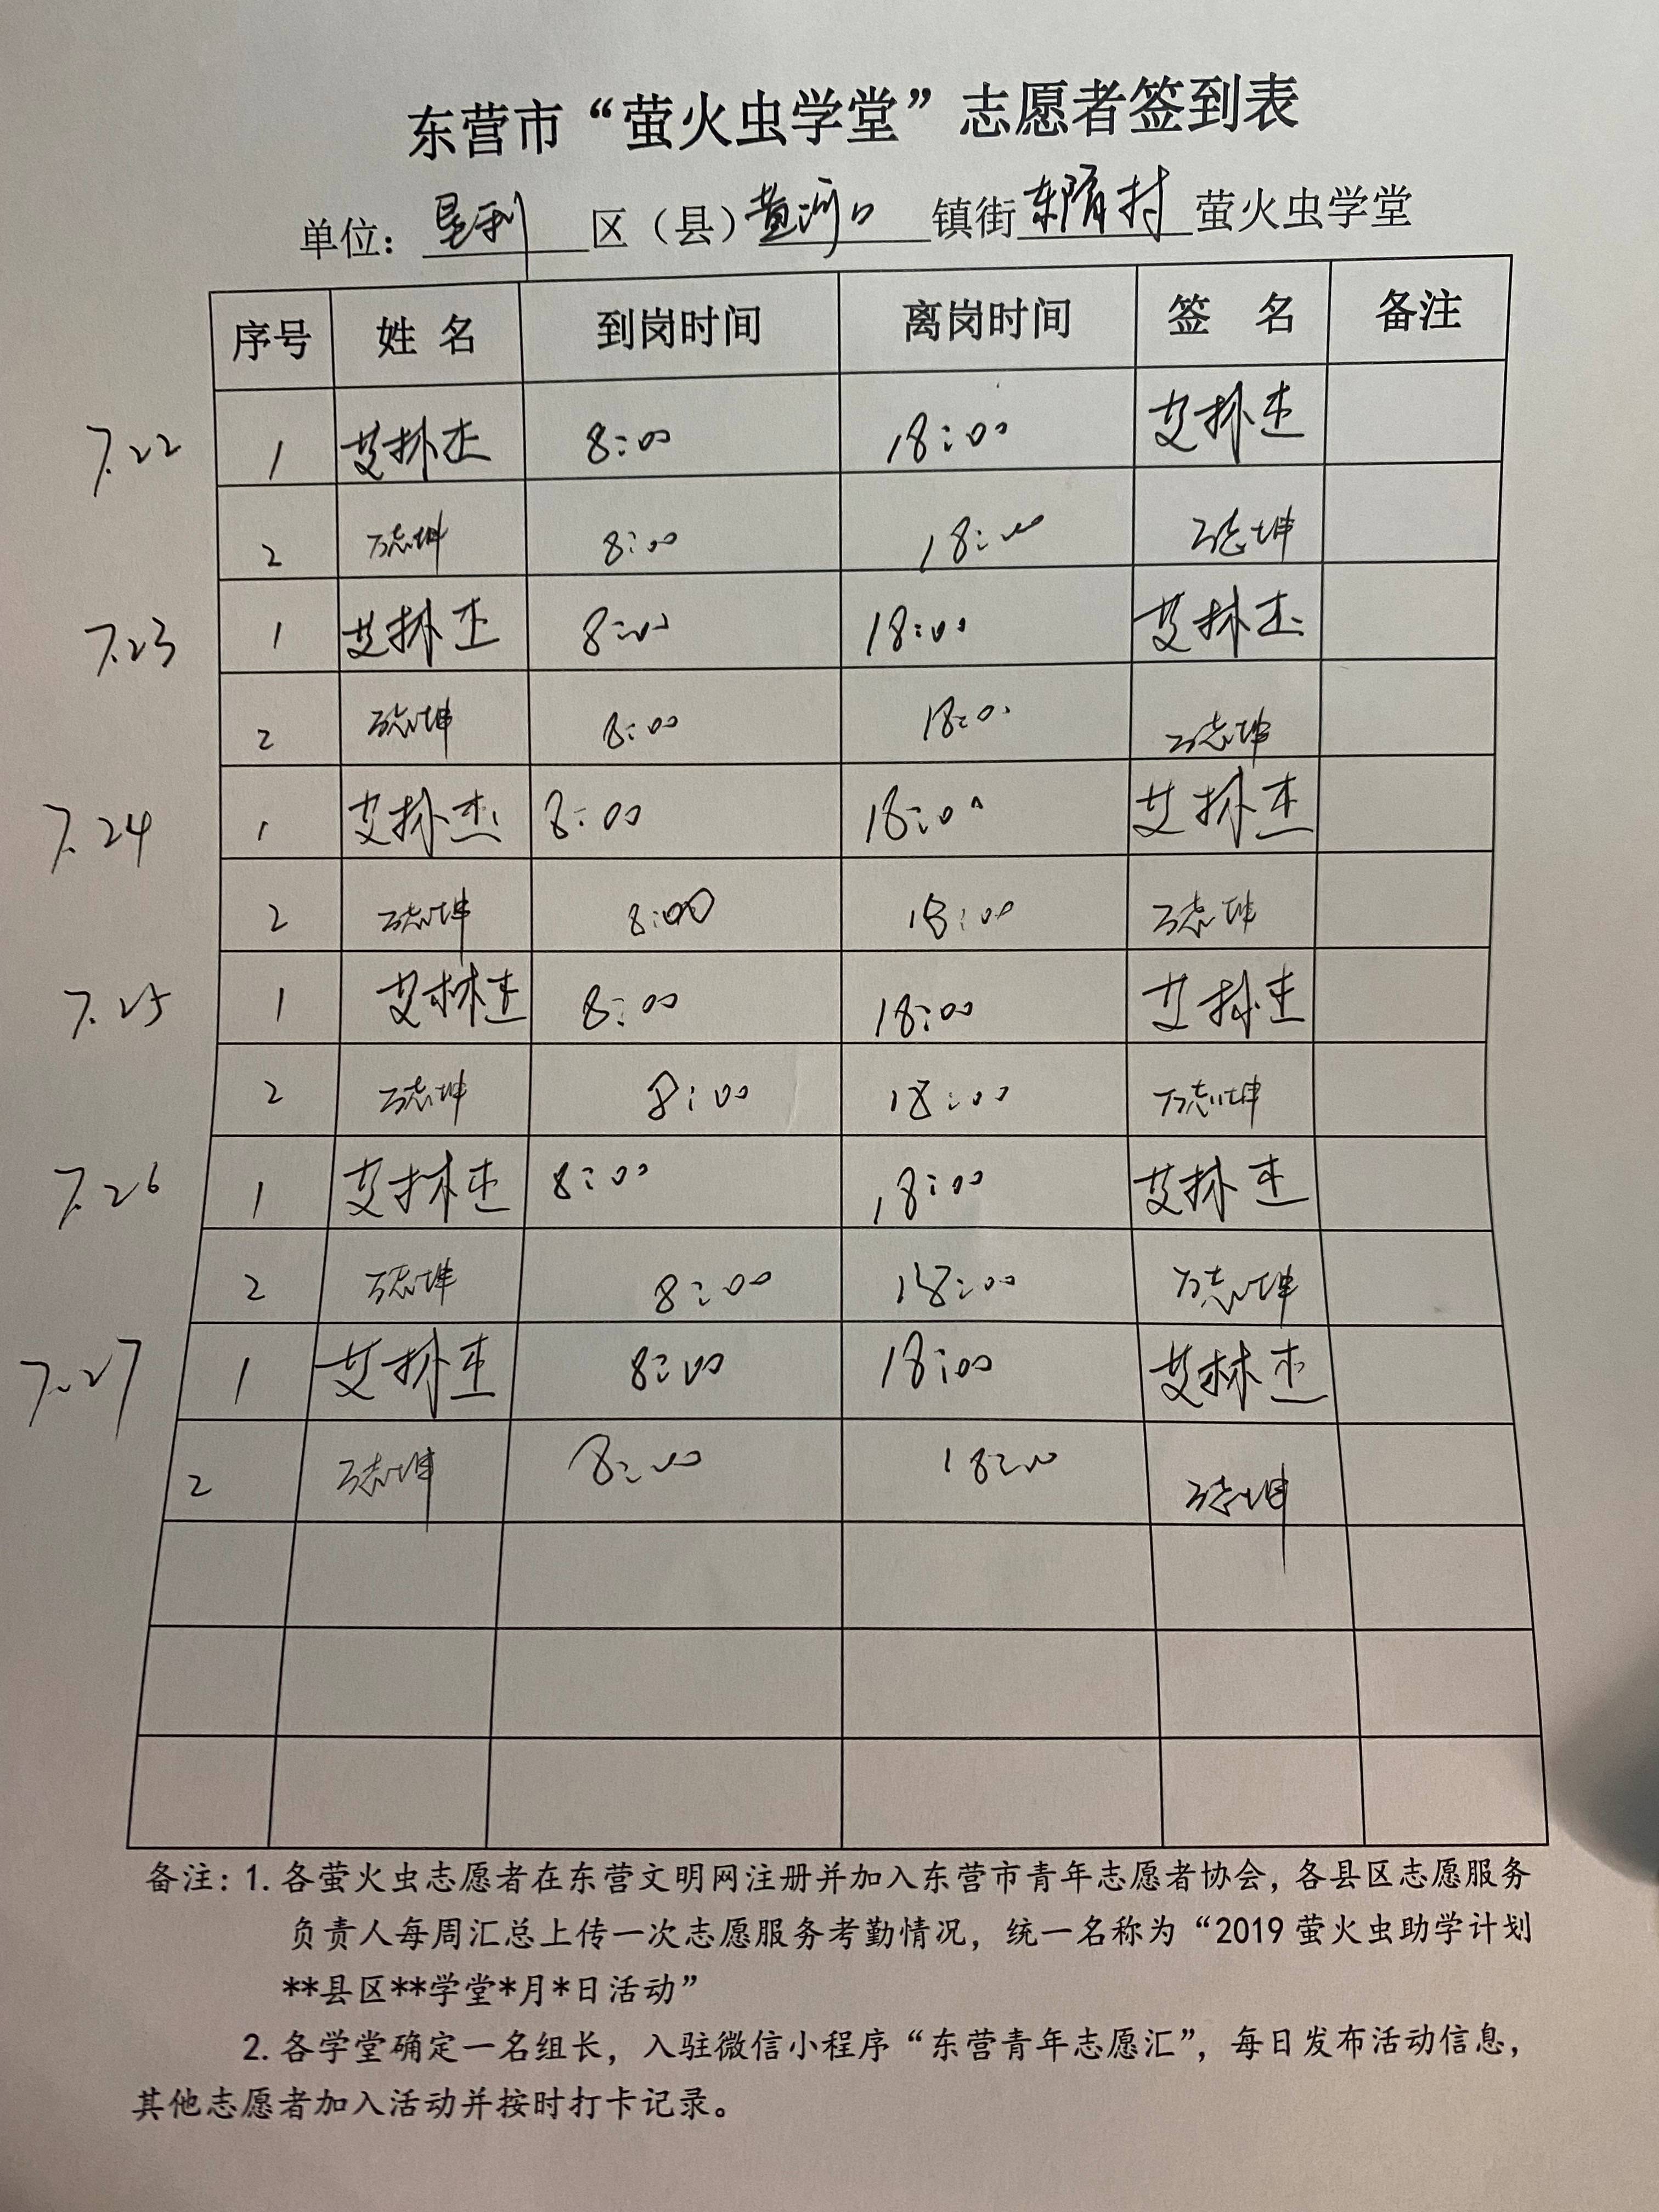 东营市“萤火虫学堂”志愿者签到表
单位：垦利区（县）黄河口镇街东隋村萤火虫学堂
序号 姓名 到岗时间 离岗时间 签名 备注
7.22 1 艾林杰 8:00 18:00 艾林杰
2 万志坤 8:00 18:00 万志坤
7.23 1 艾林杰 8:00 18:00 艾林杰
2 万志坤 8:00 18:00 万志坤
7.24 1 艾林杰 8:00 18:00 艾林杰
2 万志坤 8:00 18:00 万志坤
7.25 1 艾林杰 8:00 18:00 艾林杰
2 万志坤 8:00 18:00 万志坤
7.26 1 艾林杰 8:00 18:00 艾林杰
2 万志坤 8:00 18:00 万志坤
7.27 1 艾林杰 8:00 18:00 艾林杰
2 万志坤 8:00 18:00 万志坤
备注：1.各萤火虫志愿者在东营文明网注册并加入东营市青年志愿者协会，各县区志愿服务
负责人每周汇总上传一次志愿服务考勤情况，统一名称为“2019萤火虫助学计划
**县区**学堂*月*日活动”
2.各学堂确定一名组长，入驻微信小程序“东营青年志愿汇”，每日发布活动信息，
其他志愿者加入活动并按时打卡记录。